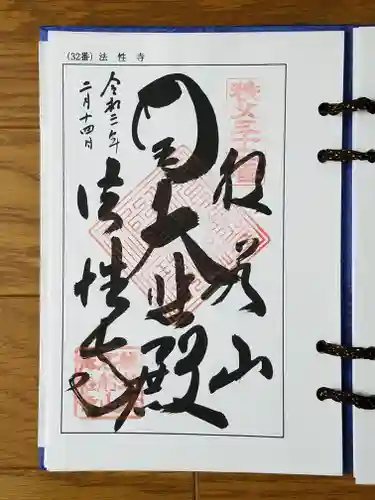 (32番) 法性寺
秩父三十二番
般若山
大悲殿
法性寺
令和二年
二月十四日